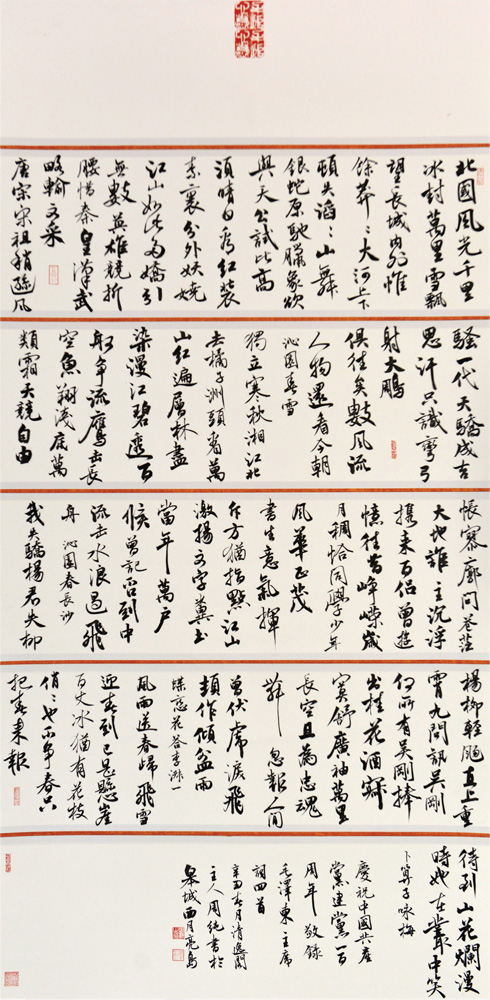 北國風光千里
冰封萬里雪飄
望長城內外惟
餘莽〻大河上下
頓失滔〻山舞
銀蛇原馳臘象欲
與天公試比高
須晴日看紅裝
素裹分外妖嬈
江山如此多嬌引
無數英雄競折
腰惜秦皇漢武
略輸文采
唐宗宋祖稍遜風
騷一代天驕成吉
思汗只識彎弓
射大鵰
俱往矣數風流
人物還看今朝
沁園春雪
獨立寒秋湘江北
去橘子洲頭看萬
山紅遍層林盡
染漫江碧透百
舸爭流鷹擊長
空魚翔淺底萬
類霜天競自由
悵寥廓問蒼茫
大地誰主沉浮
攜來百侶曾遊
憶往昔崢嶸歲
月稠恰同學少年
風華正茂
書生意氣揮
斥方遒指點江山
激揚文字糞土
當年萬戶
侯曾記否到中
流擊水浪遏飛
舟 沁園春長沙
我失驕楊君失柳
楊柳輕颺直上重
霄九問訊吳剛
何所有吳剛捧
出桂花酒寂
寞舒廣袖萬里
長空且為忠魂
舞 忽報人間
曾伏虎淚飛
頓作傾盆雨
蝶戀花答李淑一
風雨送春歸飛雪
迎春到已是懸崖
百丈冰猶有花枝
俏〻也不爭春只
把春來報
待到山花爛漫
時她在叢中笑
卜算子詠梅
慶祝中國共產
黨建黨一百
周年 敬錄
毛澤東主席
詞四首
辛丑春月清逸閣
主人周純書於
皋城西月亮島